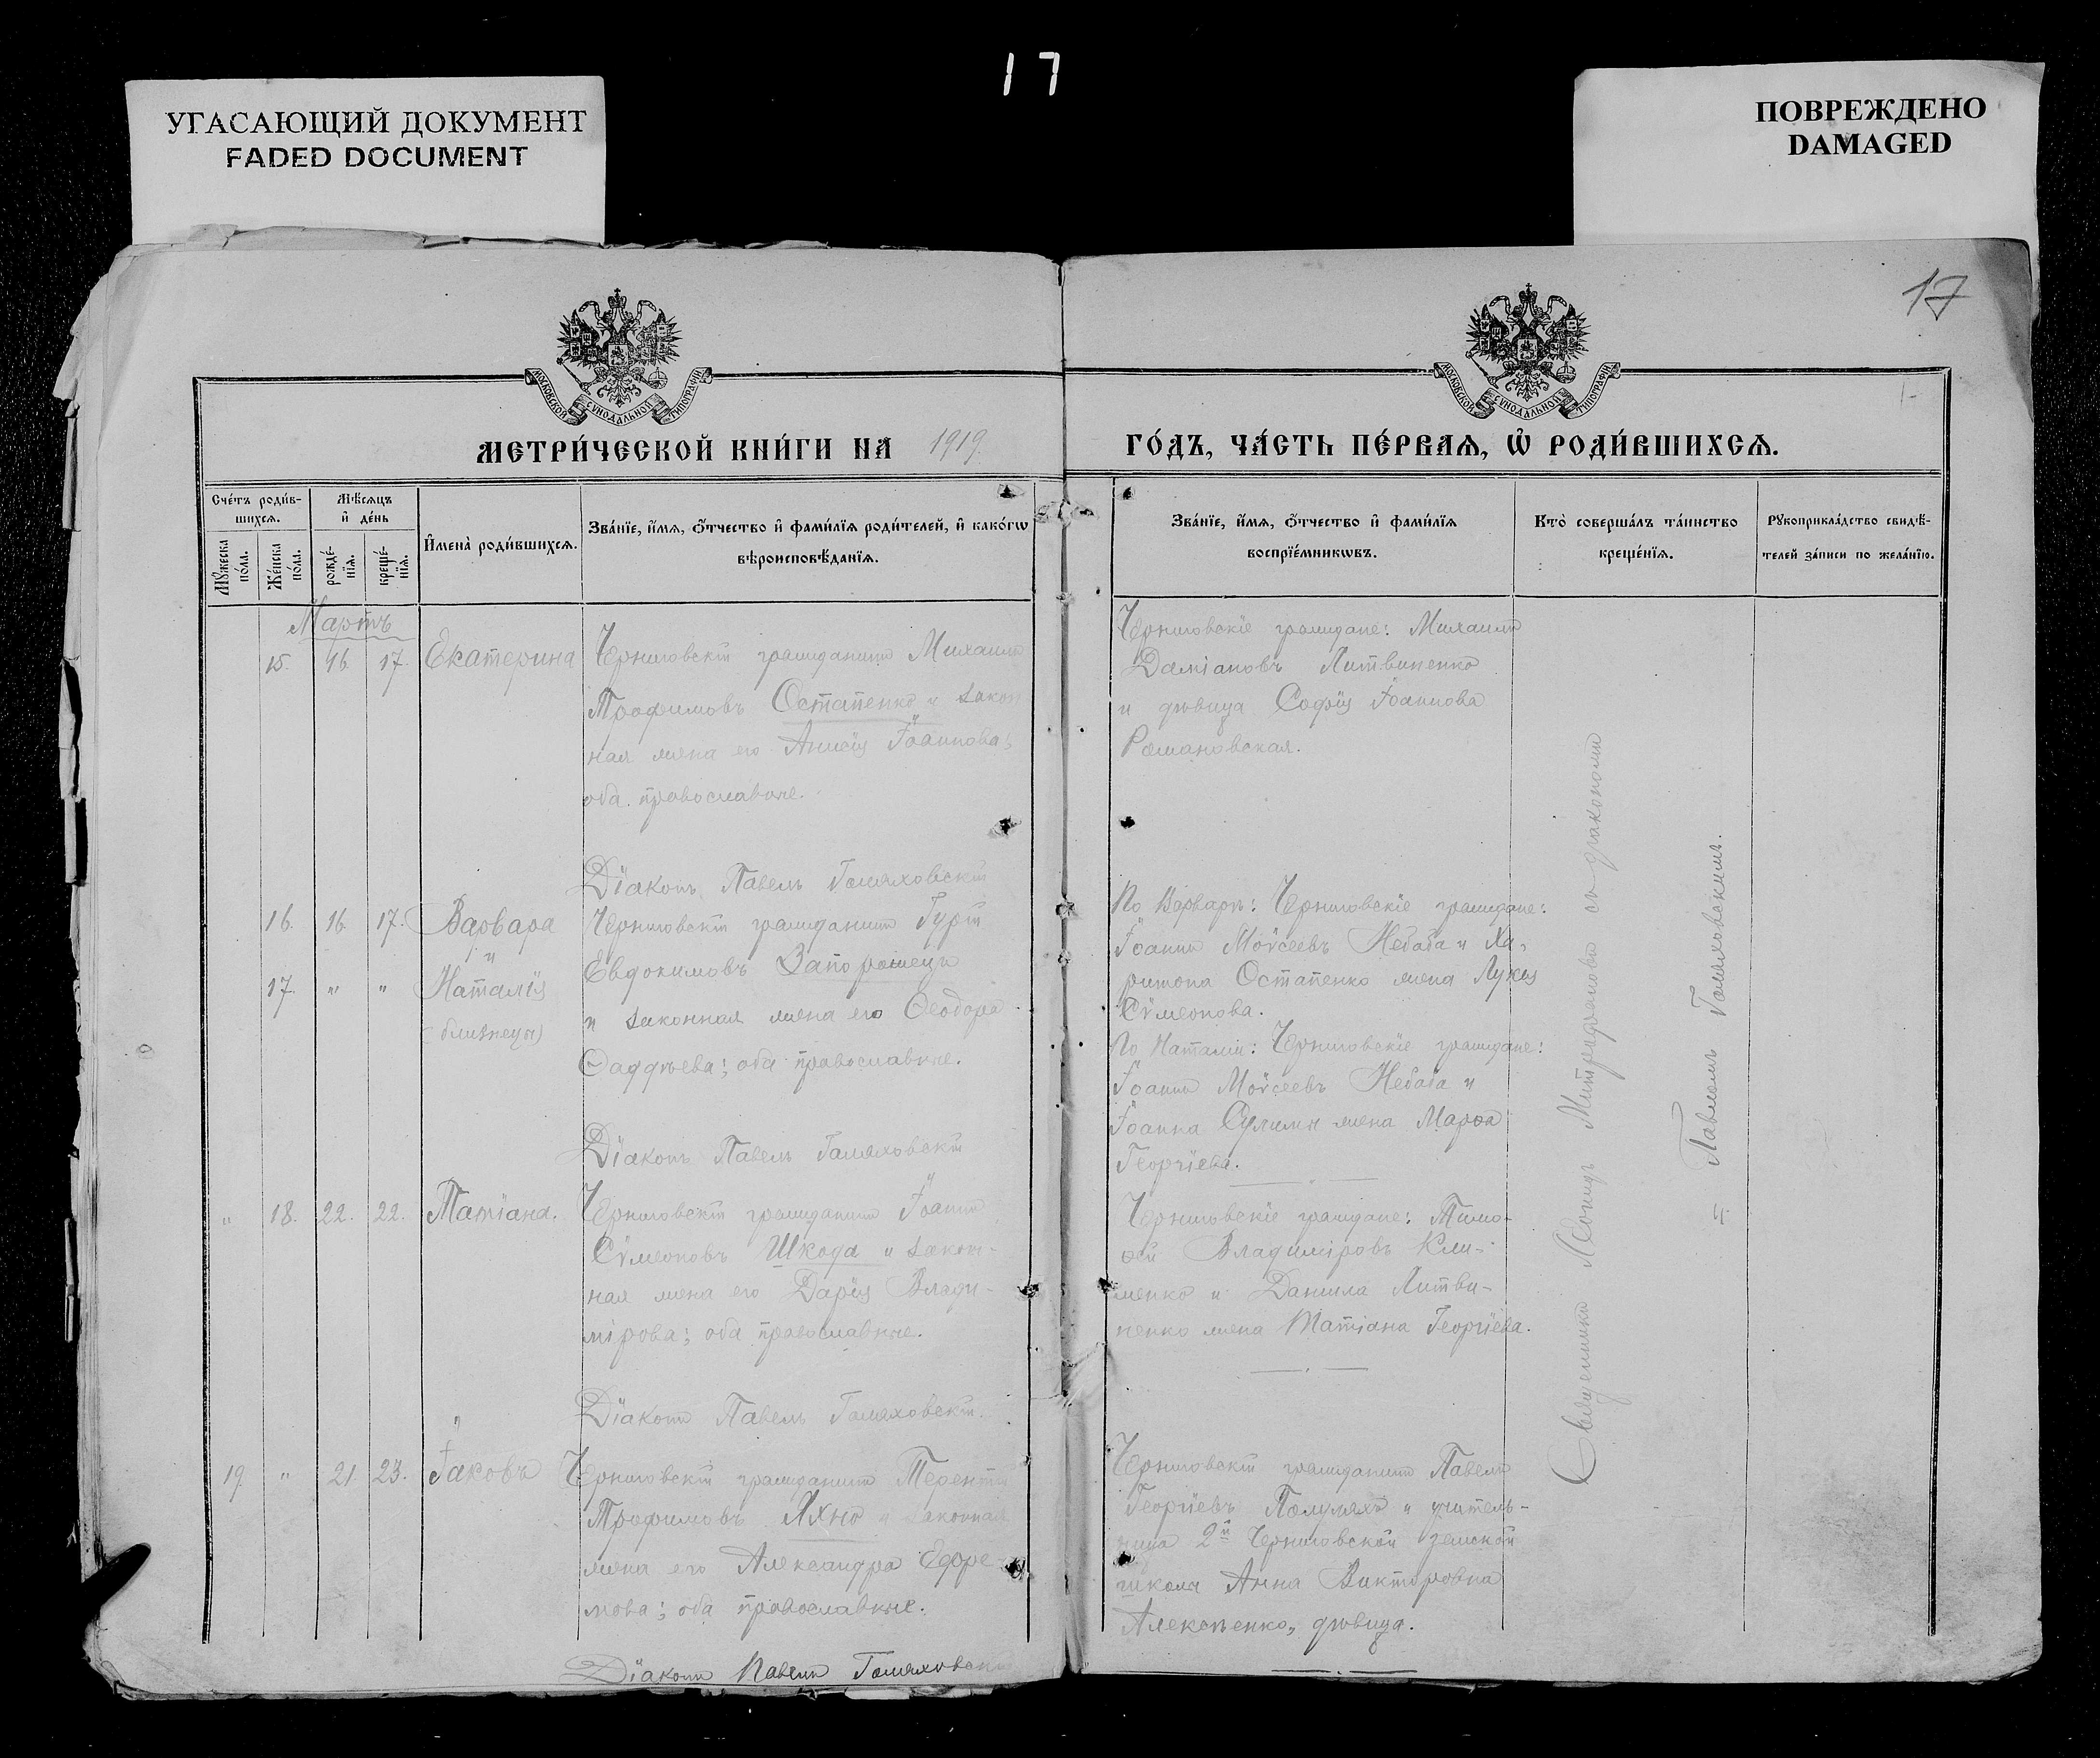 17
УГАСАЮЩИЙ ДОКУМЕНТ
FADED DOCUMENT
ПОВРЕЖДЕНО
DAMAGED
17
МОСКОВСКОЙ СѴНОДАЛЬНОЙ ТИПОГРАФІИ
МОСКОВСКОЙ СѴНОДАЛЬНОЙ ТИПОГРАФІИ
МЕТРИ́ЧЕСКОЙ КНИ́ГИ НА 1919.
ГО́ДЪ, ЧА́СТЬ ПЕ́РВАѦ, Ѡ҆ РОДИ́ВШИХСѦ.
Сче́тъ роди́в-
шихсѧ.
Мꙋ́жеска
по́ла.
Же́нска
по́ла.
Мѣ́сѧцъ
и҆ де́нь
рожде́-
нїѧ.
креще́-
нїѧ.
И҆мена̀ роди́вшихсѧ.
Зва́нїе, и҆́мѧ, ѻ҆́тчество и҆ фами́лїѧ роди́телей, и҆ како́гѡ
вѣроисповѣ́данїѧ.
Зва́нїе, и҆́мѧ, ѻ҆́тчество и҆ фами́лїѧ
воспрїе́мникѡвъ.
Кто̀ соверша́лъ та́инство
креще́нїѧ.
Рꙋкоприкла́дство свидѣ́-
телей за́писи по жела́нїю.
Мартъ
15. 16. 17. Екатерина
Черниговскій гражданинъ Михаилъ
Трофимовъ Остапенко и закон
ная жена его Анисія Іоаннова;
оба православные.
Діаконъ Павелъ Гомяховскій
Черниговскіе граждане: Михаилъ
Даміановъ Литвиненко
и дѣвица Софія Іоаннова
Романовская.
16. 16. 17. Варвара
и
17. " " Наталія
(близнецы)
Черниговскій гражданинъ Гурій
Евдокимовъ Запорожецъ
и законная жена его Ѳеодора
Ѳаддѣева; оба православные.
Діаконъ Павелъ Гомяховскій
По Варварѣ: Черниговскіе граждане:
Іоаннъ Моѵсеевъ Небаба и Ха-
ритона Остапенко жена Лукія
Сѵмеонова.
По Наталіи: Черниговскіе граждане:
Іоаннъ Моѵсеевъ Небаба и
Іоанна Сулимы жена Марѳа
Георгіева.
" 18. 22. 22. Татіана.
Черниговскій гражданинъ Іоаннъ
Сѵмеоновъ Шкода и закон-
ная жена его Дарія Влади-
мірова; оба православные.
Діаконъ Павелъ Гомяховскій.
Черниговскіе граждане: Тимо-
ѳей Владиміровъ Кли-
менко и Даніила Литви-
ненко жена Татіана Георгіева.
19. " 21. 23. Іаковъ
Черниговскій гражданинъ Терентій
Трофимовъ Яхно и законная
жена его Александра Ефре-
мова; оба православные.
Діаконъ Павелъ Гомяховскій
Черниговскій гражданинъ Павелъ
Георгіевъ и учитель-
ница 2й Черниговской земской
школы Анна Викторовна
Алексѣенко, дѣвица.
Священникъ Леонидъ Митрофановъ съ діакономъ
Павломъ Гомяховскимъ.